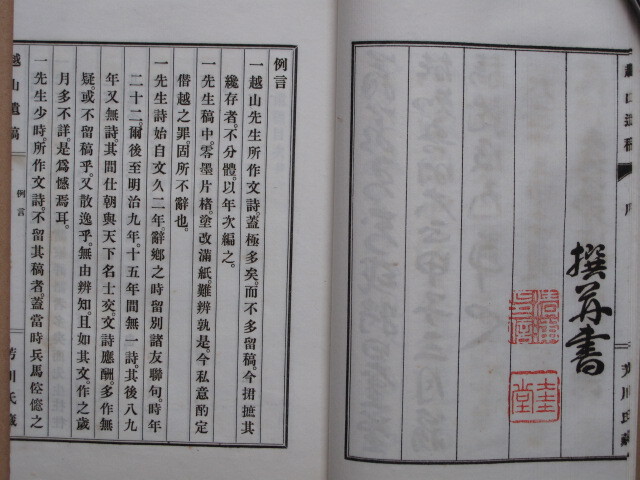 撰并書
圭堂
芳川氏藏
例言
一越山先生所作文詩。蓋極多矣。而不多留稿。今捃摭其
纔存者。不分體。以年次編之。
一先生稿中。零墨片楮。塗改滿紙。難辨孰是。今私意酌定
僭越之罪固所不辭也。
一先生詩始自文久二年。辭鄉之時留別諸友聯句。時年
二十二。爾後至明治九年。十五年間無一詩。其後八九
年又無詩。其間仕朝與天下名士交。文詩應酬。多作無
疑。或不留稿乎。又散逸乎。無由辨知。且如其文。作之歲
月多不詳。是爲憾焉耳。
一先生少時。所作文詩。不留其稿者。蓋當時兵馬倥傯之
越山遺稿
例言
芳川氏藏